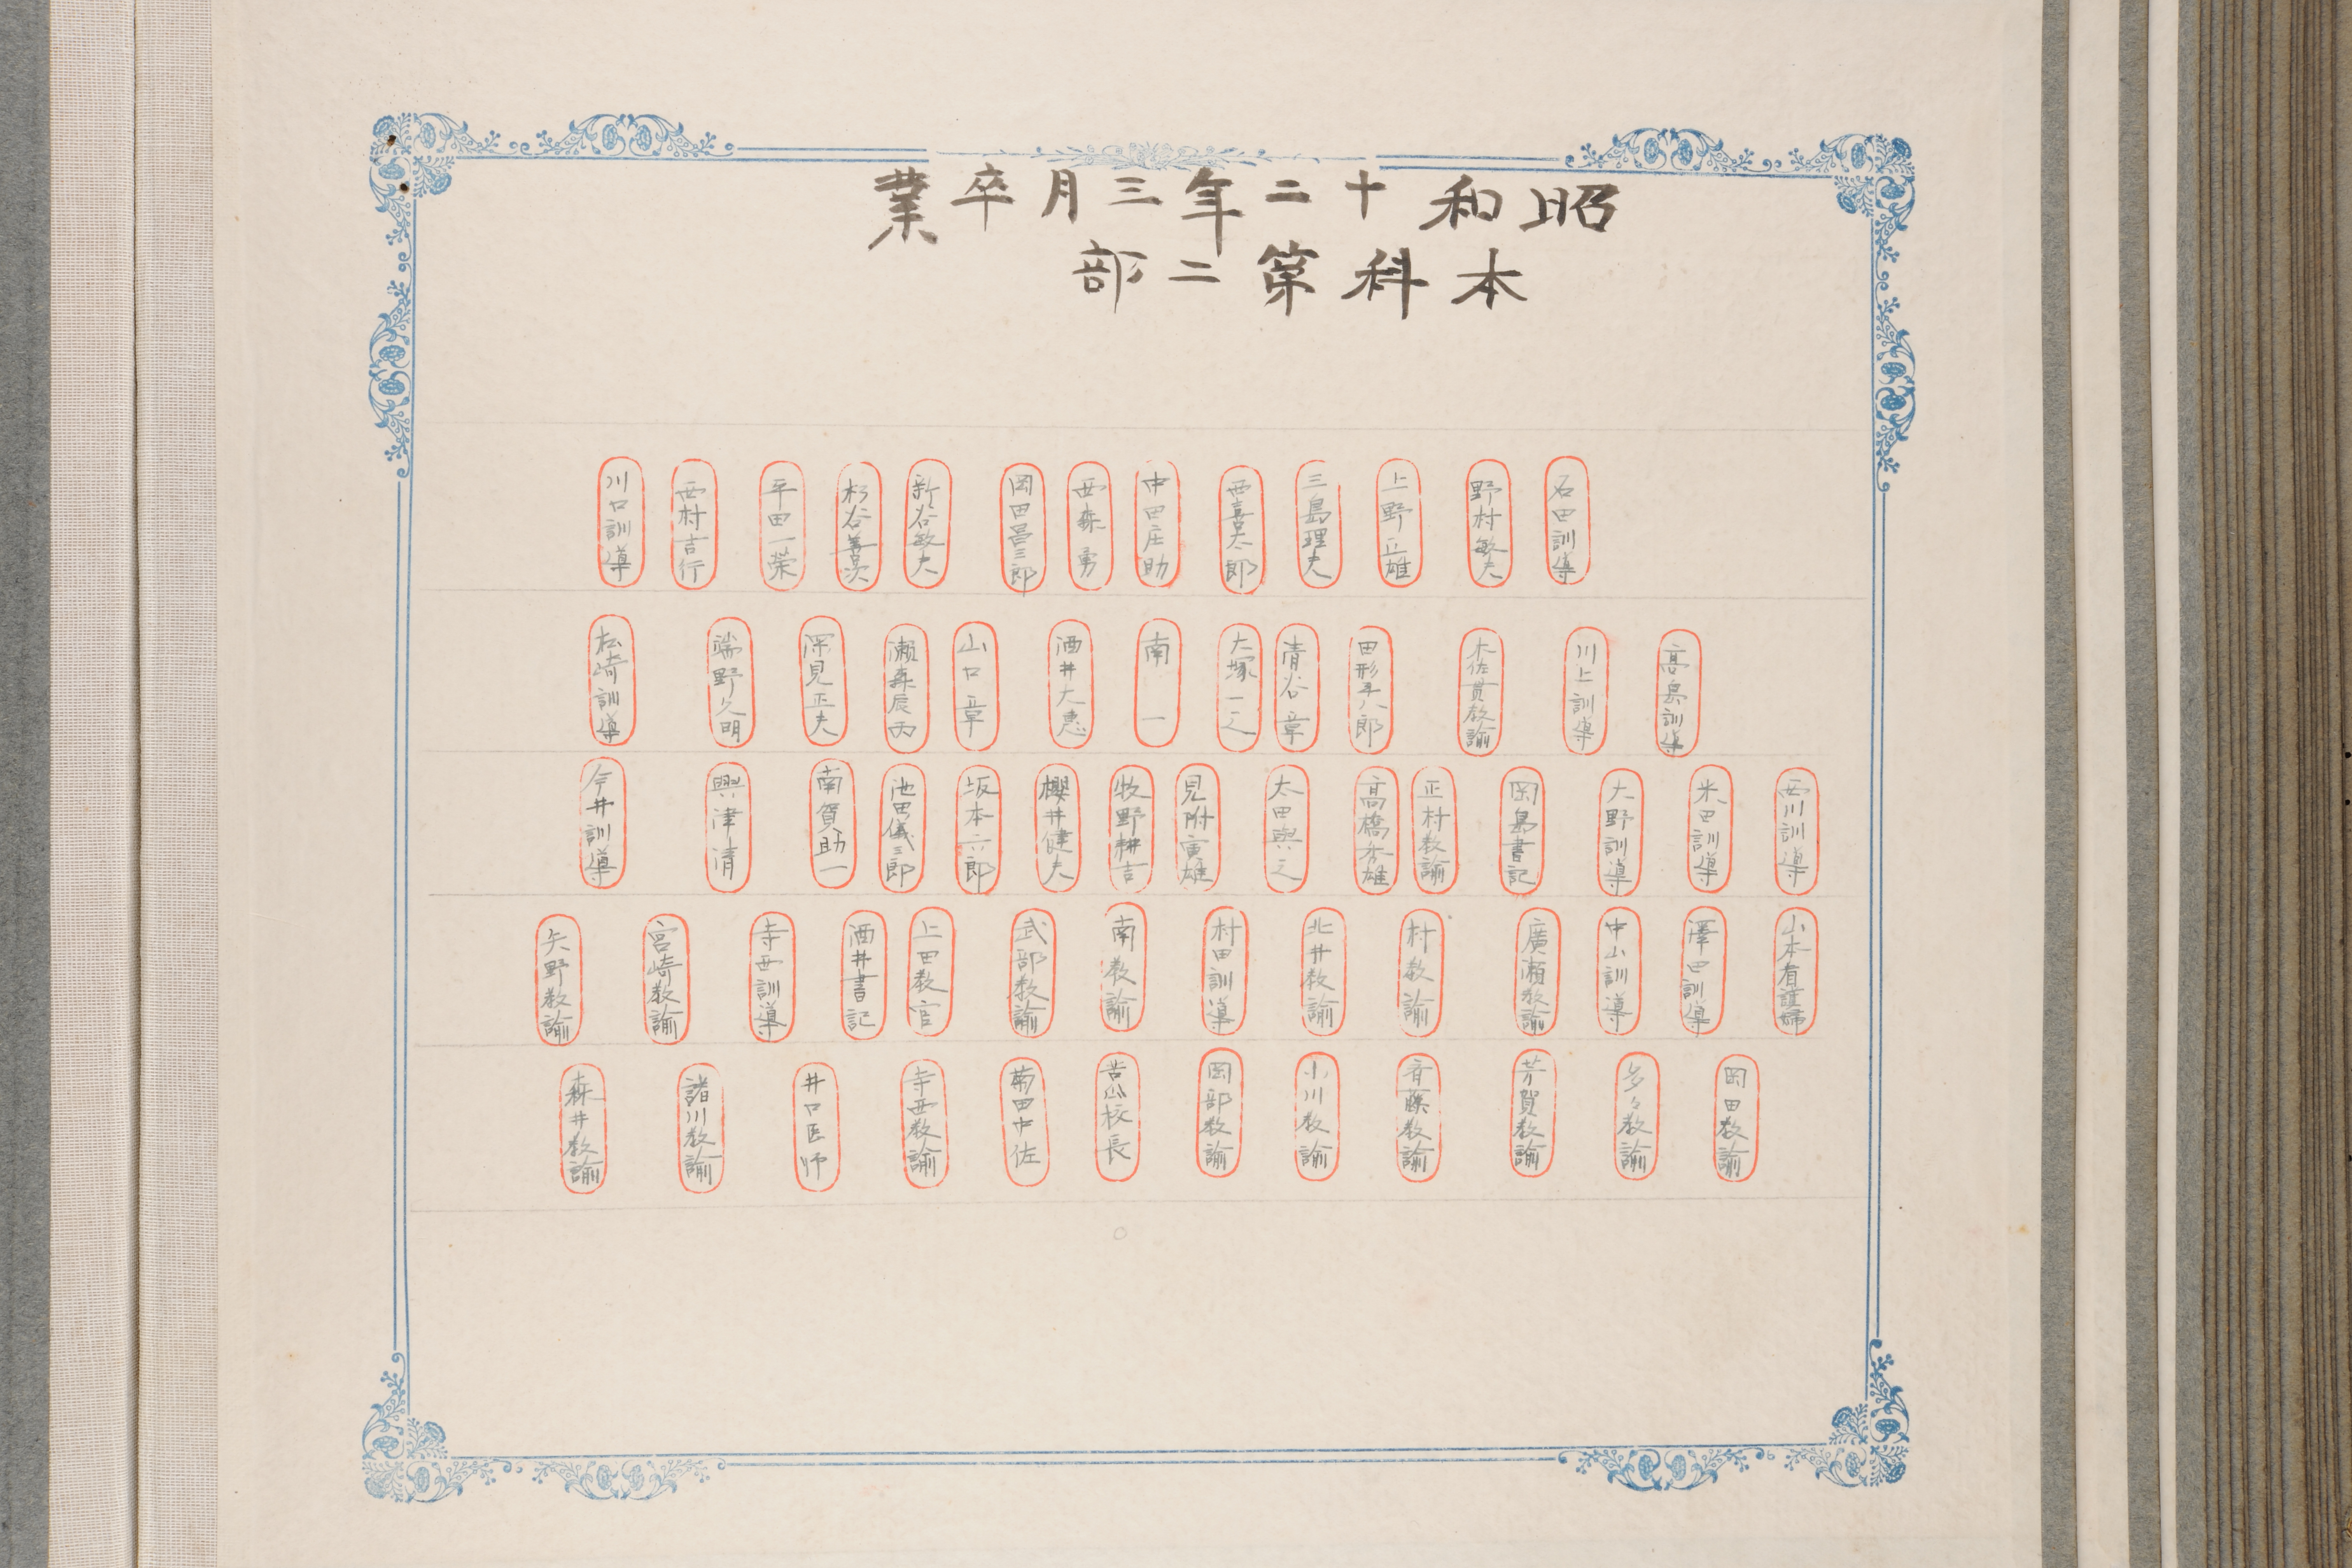 昭和十二年三月卒業
本科第二部
石田訓導 野村敏夫 上野正雄 三島理夫 西喜太郎 中田庄助 西森勇 岡田昌三郎 新谷敏夫 杉谷善次 平田一榮 西村吉行 川口訓導
高島訓導 川上訓導 木佐貫教諭 田形平八郎 清谷章 大塚一之 南一 酒井大惠 山口章 瀬森辰丙 深見正夫 端野久明 松崎訓導
西川訓導 米田訓導 大野訓導 岡島書記 正村教諭 高橋秀雄 太田與之 見附寅雄 牧野耕吉 櫻井健夫 坂本六郎 池田儀三郎 南賀助一 興津清 今井訓導
山本看護婦 澤田訓導 中山訓導 廣瀬教諭 村教諭 北井教諭 村田訓導 南教諭 武部教諭 上田教官 酒井書記 寺西訓導 宮崎教諭 矢野教諭
岡田教諭 多々教諭 芳賀教諭 斉藤教諭 小川教諭 岡部教諭 苫瓜校長 菊田中佐 寺西教諭 井口医師 諸川教諭 森井教諭